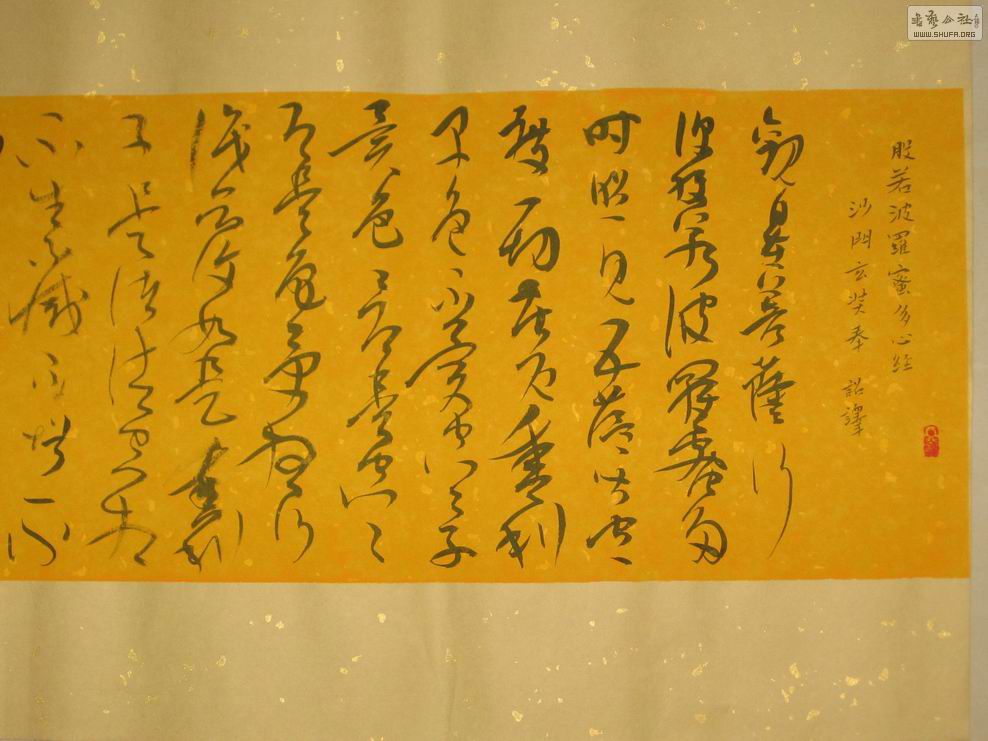 般若波羅蜜多心經
沙門玄奘奉 詔譯
觀自在菩薩行
深般若波羅蜜多
時照見五蘊皆空
度一切苦厄舍利
子色不異空〻不
異色〻即是空〻
即是色受想行
識亦復如是舍利
子是諸法空相
不生不滅不垢不
書藝公社
WWW.SHUFA.ORG